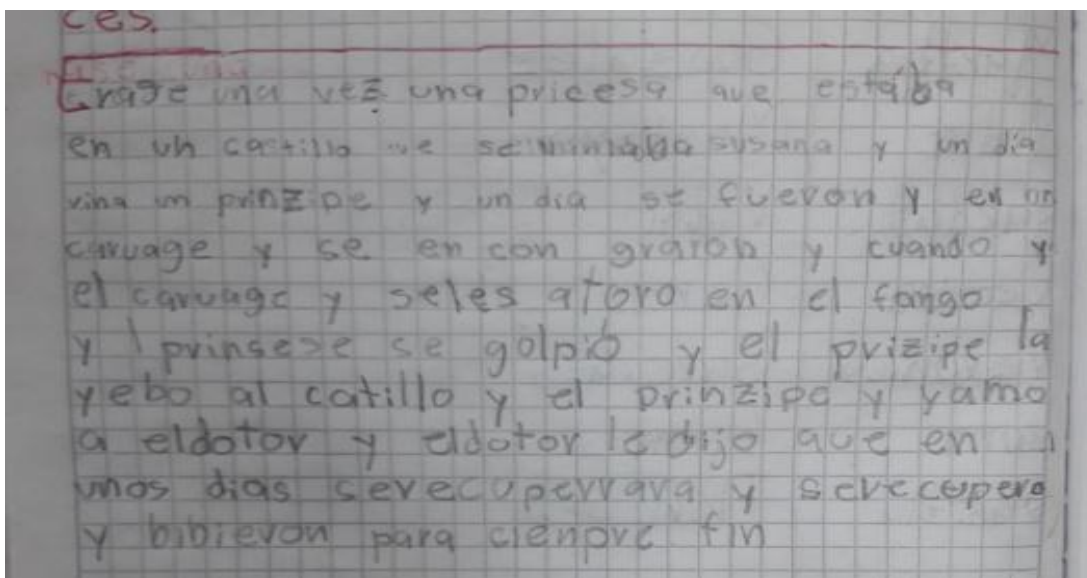 ces.
Erase una vez una pricesa que estaba
en un castillo que se susana y un dia
vina un prinzipe y un dia se fueron y en un
caruage y se en con graron y cuando y
el caruage y seles atoro en el fango
y l prinsese se golpió y el prizipe la
yebo al catillo y el prinzipe y yamo
a eldotor y eldotor le dijo que en
unos dias serecuperrara y serecupero
y bibieron para cienpre fin